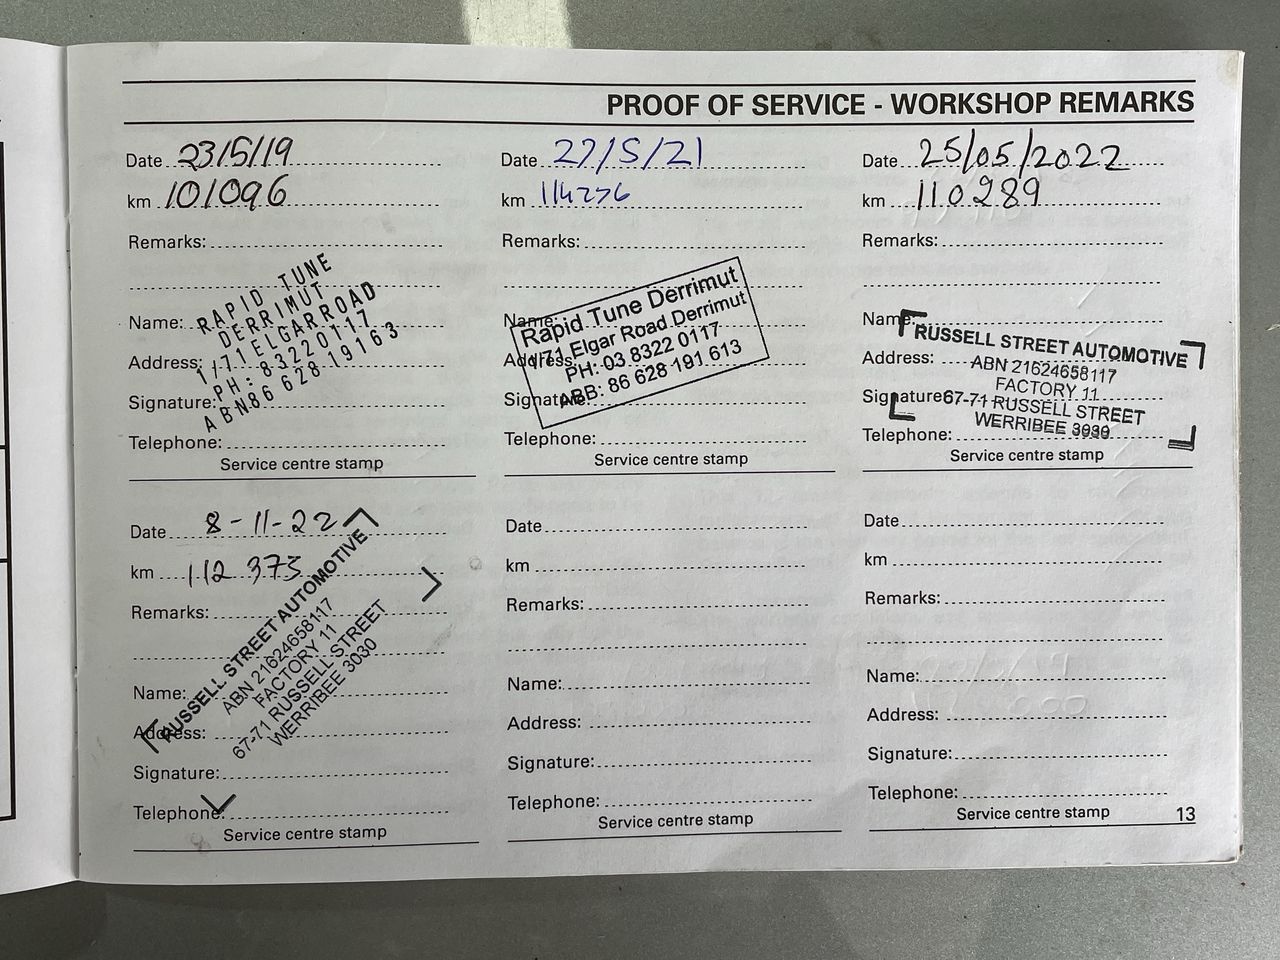 PROOF OF SERVICE - WORKSHOP REMARKS
Date 23/5/19
km 101096
Remarks:
Name:
Address:
Signature:
Telephone:
RAPID TUNE
DERRIMUT
1/71 ELGAR ROAD
PH: 83220117
ABN86 628 19163
Service centre stamp
Date 27/5/21
km 114276
Remarks:
Name:
Address:
Signature:
Telephone:
Rapid Tune Derrimut
1/71 Elgar Road Derrimut
PH: 03 8322 0117
ABB: 86 628 191 613
Service centre stamp
Date 25/05/2022
km 110289
Remarks:
Name:
Address:
Signature:
Telephone:
RUSSELL STREET AUTOMOTIVE
ABN 21624658117
FACTORY 11
67-71 RUSSELL STREET
WERRIBEE 3030
Service centre stamp
Date 8-11-22
km 112 373
Remarks:
Name:
Address:
Signature:
Telephone:
RUSSELL STREET AUTOMOTIVE
ABN 21624658117
FACTORY 11
67-71 RUSSELL STREET
WERRIBEE 3030
Service centre stamp
Date
km
Remarks:
Name:
Address:
Signature:
Telephone:
Service centre stamp
Date
km
Remarks:
Name:
Address:
Signature:
Telephone:
Service centre stamp
13